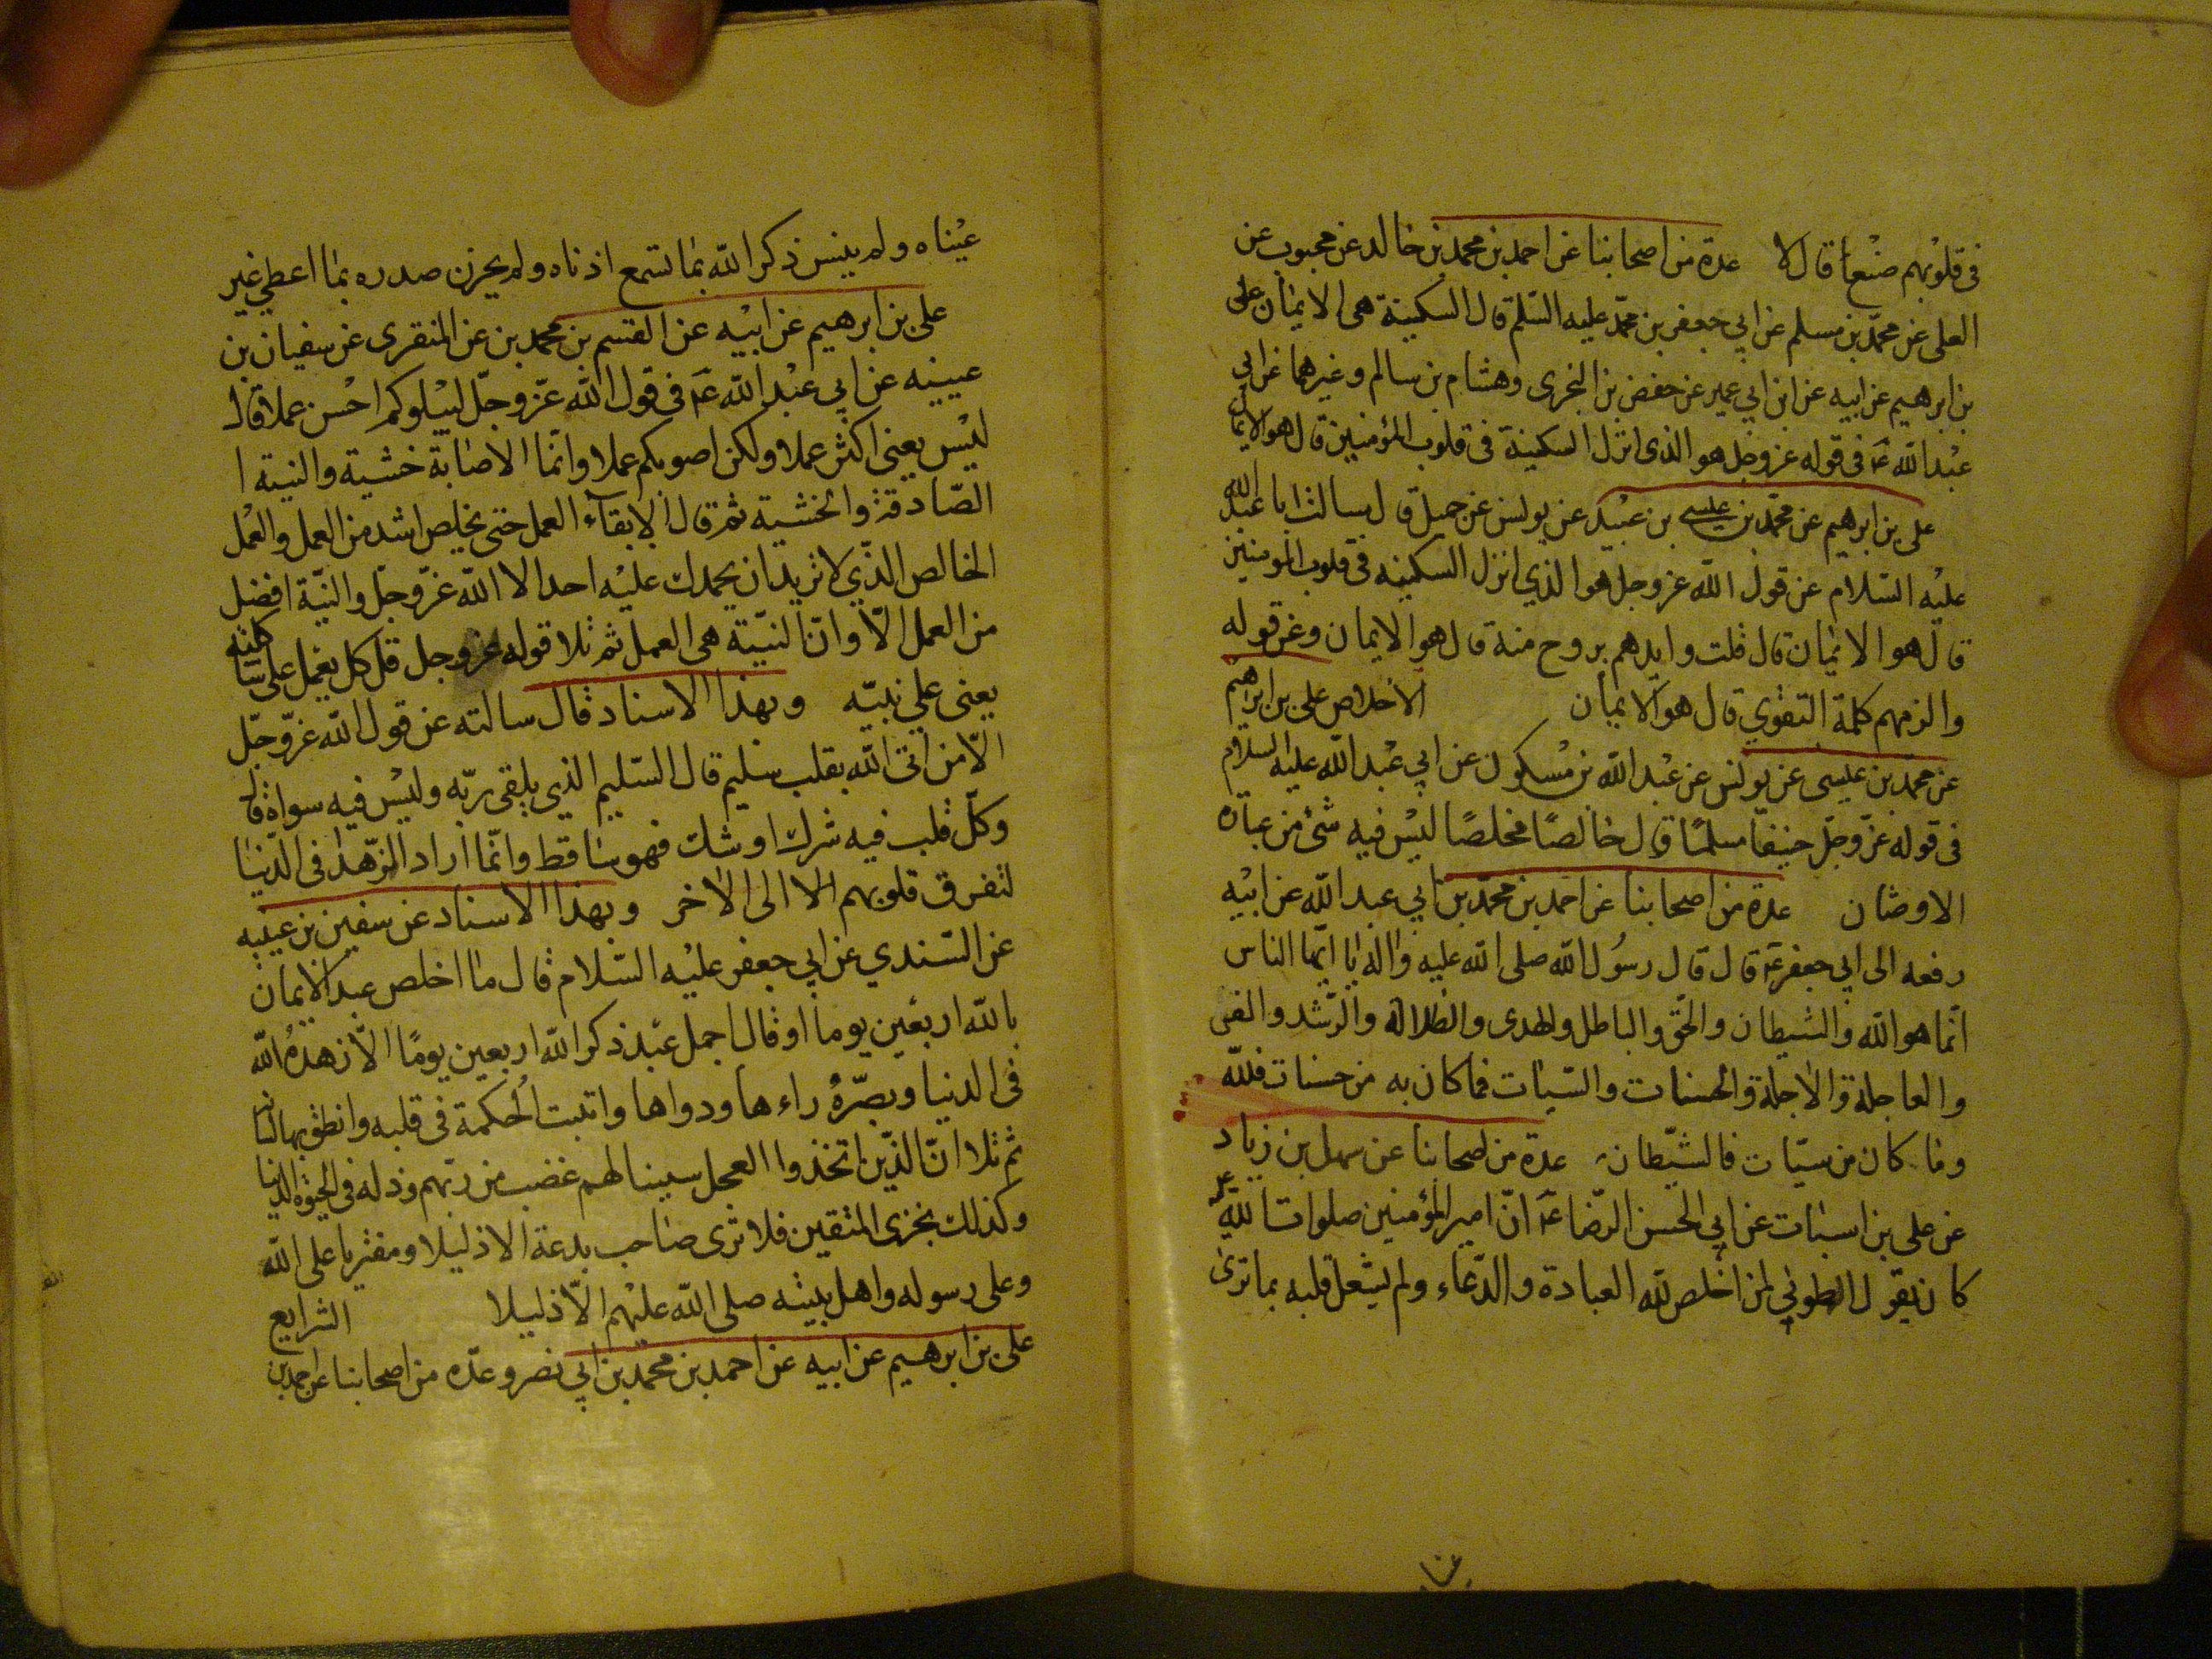 في قلوبهم صنع قال لا عدة من اصحابنا عن احمد بن محمد بن خالد عن محبوب عن
العلى عن محمد بن مسلم عن ابي جعفر بن محمد عليه السلم قال السكينة هى الايمان على
بن ابرهيم عن ابيه عن ابن ابي عمير عن حفص بن البخرى وهشام بن سالم وغيرهما عن ابي
عبد الله ع في قوله عز وجل هو الذى انزل السكينة فى قلوب المؤمنين قال هو الايمان
على بن ابرهيم عن محمد بن عيسى بن عبيد عن يونس عن جميل قال سالت ابا عبد الله
عليه السلام عن قول الله عز وجل هو الذي انزل السكينه فى قلوب المومنين
قال هو الايمان قال قلت وايدهم بروح منه قال هو الايمان وعن قوله
والزمهم كلمة التقوي قال هو الايمان الاخلاص على بن ابراهيم
عن محمد بن عيسى عن يونس عن عبد الله بن مسكون عن ابي عبد الله عليه السلام
فى قوله عز وجل حنيفا مسلما قال خالصا مخلصا ليس فيه شئ من عبادة
الاوثان عدة من اصحابنا عن احمد بن محمد بن ابي عبد الله عن ابيه
رفعه الى ابي جعفر ع قال قال رسول الله صلى الله عليه واله يا ايها الناس
انما هو الله والشيطان والحق والباطل والهدى والظلالة والرشد والغى
والعاجلة والاجلة والحسنات والسيات فما كان به من حسنات فلله
وما كان من سيات فالشيطان عدة من اصحابنا عن سهل بن زياد
عن على بن اسباث عن ابي الحسن الرضا ع ان امير المؤمنين صلوات الله عل
كان يقول الطوبي لمن اخلص لله العبادة والدعاء ولم يشغل قلبه بما ترى
عيناه ولم ينس ذكر الله بما تسمع اذناه ولم يحزن صدره بما اعطي غير
على بن ابرهيم عن ابيه عن القسم بن محمد بن عن المنقرى عن سفيان بن
عيينه عن ابي عبد الله ع فى قول الله عز وجل ليبلوكم احسن عملا قال
ليس يعنى اكثر عملا ولكن اصوبكم عملا وانما الاصابة خشية والنية ا
الصادقة والخشية ثم قال الابقآء العمل حتى يخلص اشد من العمل والعمل
الخالص الذي لا تريد ان يحمدك عليه احد الا الله عز وجل والنية افضل
من العمل الا وان النية هى العمل ثم تلا قوله عز وجل قل كل يعمل على شاكلته
يعنى على نيته وبهذا الاسناد قال سالته عن قول الله عز وجل
الا من اتى الله بقلب سليم قال السليم الذي يلقى ربه وليس فيه سواه قال
وكل قلب فيه شرك او شك فهو ساقط وانما اراد الزهد فى الدنيا
لتفرق قلوبهم الا الى الاخر وبهذا الاسناد عن سفين بن عيينه
عن السندي عن ابي جعفر عليه السلام قال ما اخلص عبد الايمان
بالله اربعين يوما او قال اجمل عبد ذكر الله اربعين يوما الا زهده الله
في الدنيا وبصره راءها ودواها واتبت الحكمة فى قلبه وانطق بها لسانه
ثم تلا ان الذين اتخذوا العجل سينالهم غضب من ربهم وذله فى الحيوة الدنيا
وكذلك نجزى المتقين فلا ترى صاحب بدعة الا ذليلا ومفتريا على الله
وعلى رسوله واهل بيته صلى الله عليهم الا ذليلا الشرايع
على بن ابرهيم عن ابيه عن احمد بن محمد بن ابي نصر وعده من اصحابنا عن احمد بن